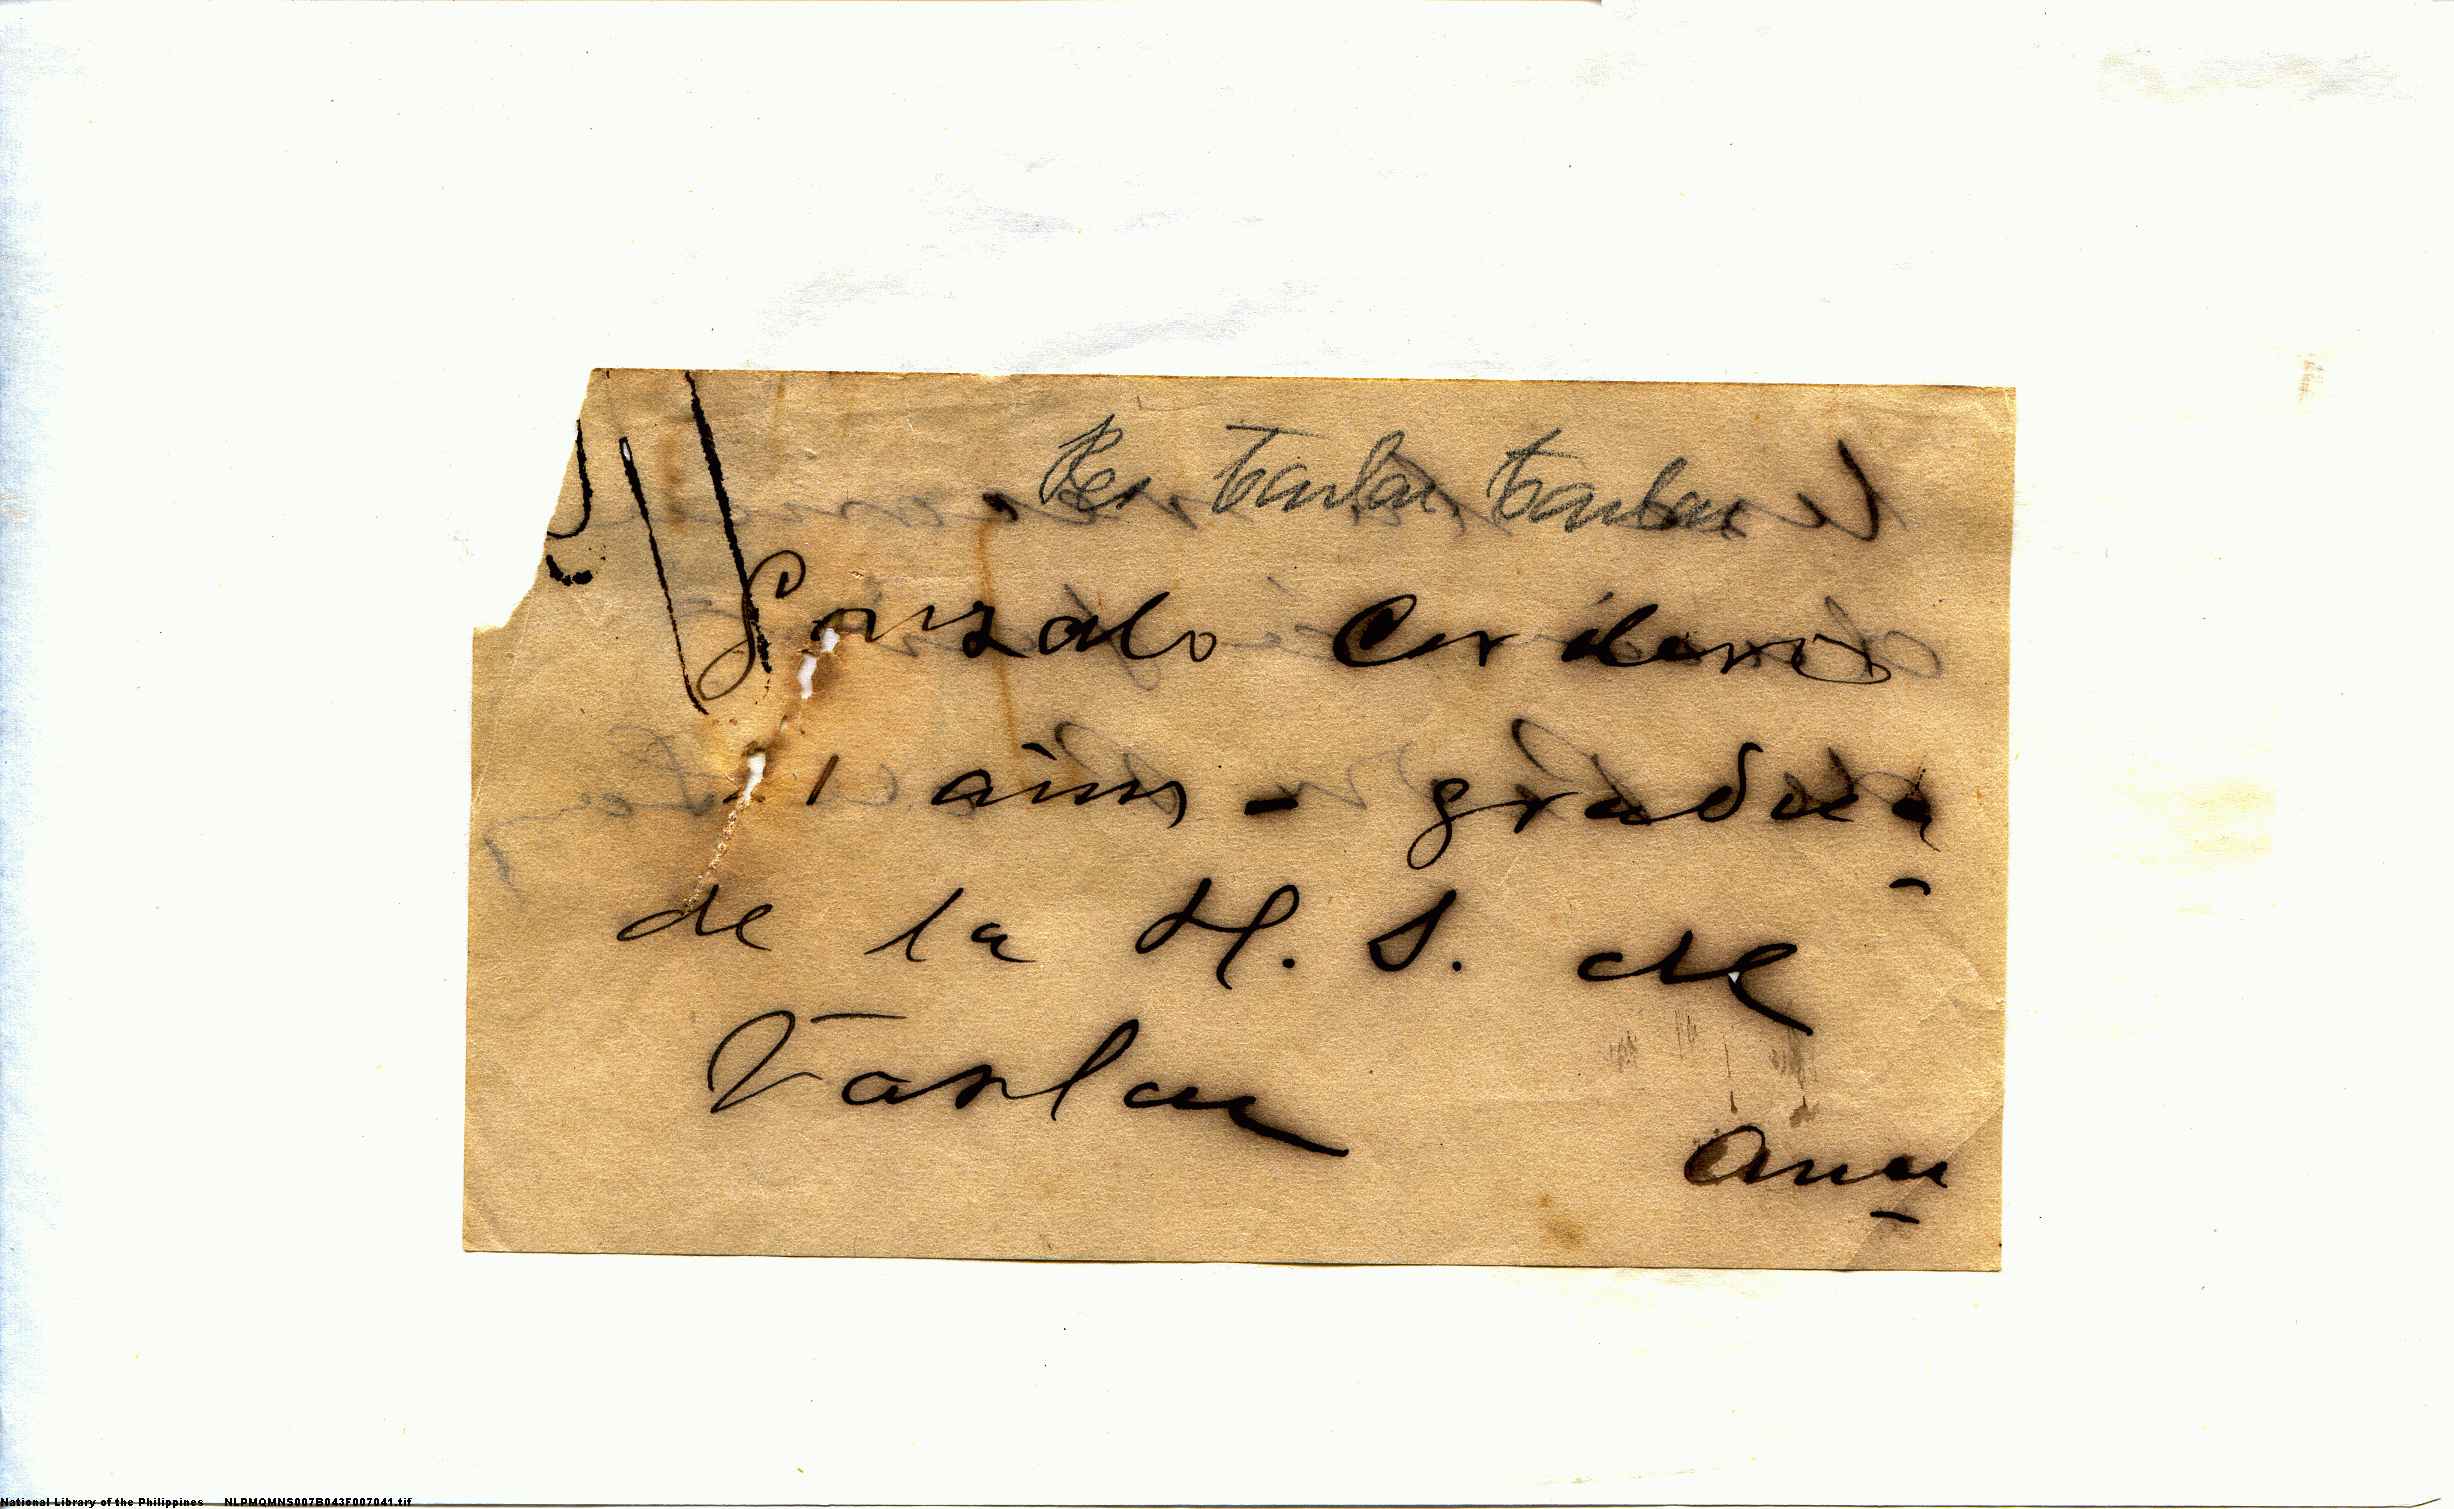 Res Tarlac, Tarlac
Gonzalo Cordero
21 años - gradua
de la H. S. de
Tarlac
Anu
National Library of the Philippines NLPMQMNS007B043F007041.tif